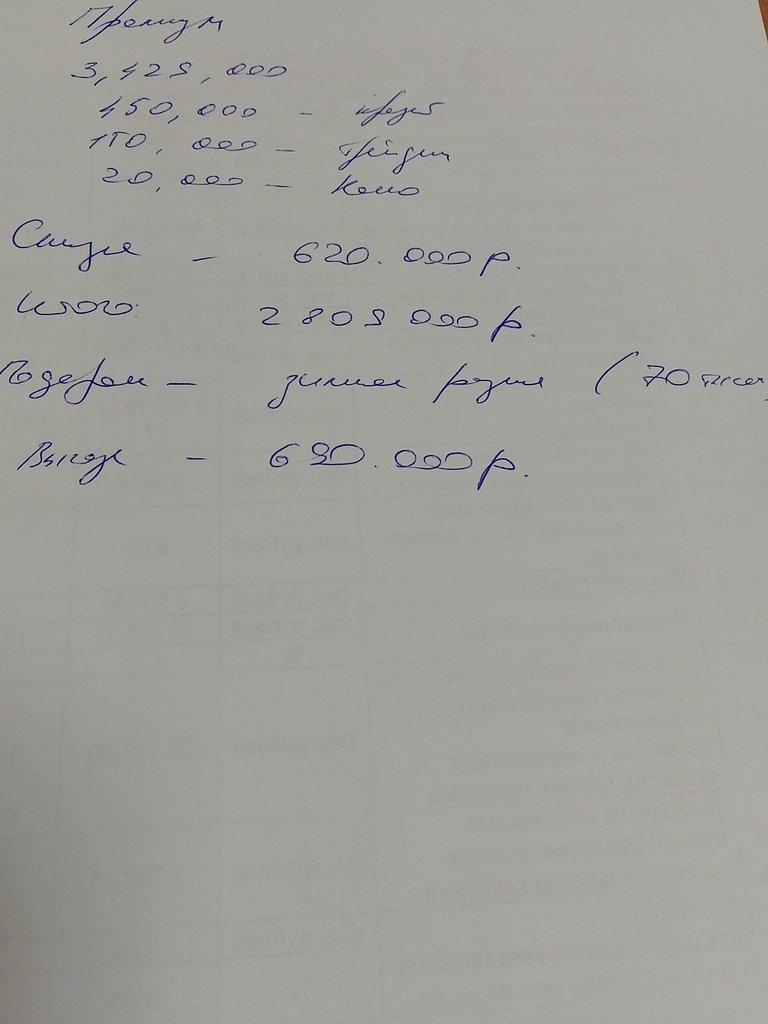 Премиум
3,429,000
450,000 - кредит
150,000 - трейдин
20,000 - Каско
Скидка - 620.000р.
Итого: 2809000р.
Подарок - зимняя резина (70 тысяч
Выгода - 690.000р.